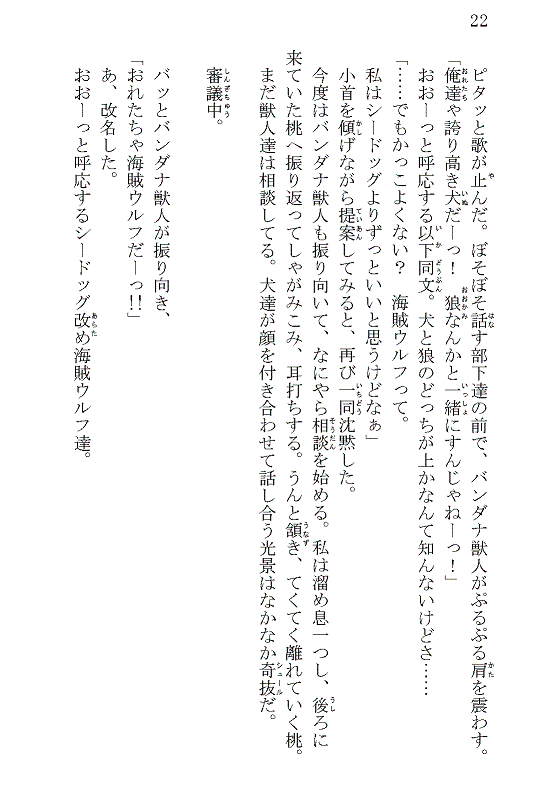 22
ピタッと歌が止んだ。ぼそぼそ話す部下達の前で、バンダナ獣人がぷるぷる肩を震わす。
「俺達ゃ誇り高き犬だーっ！　狼なんかと一緒にすんじゃねーっ！」
おおーっと呼応する以下同文。犬と狼のどっちが上かなんて知んないけどさ……
「……でもかっこよくない？　海賊ウルフって。
私はシードッグよりずっといいと思うけどなぁ」
小首を傾げながら提案してみると、再び一同沈黙した。
今度はバンダナ獣人も振り向いて、なにやら相談を始める。私は溜め息一つし、後ろに
来ていた桃へ振り返ってしゃがみこみ、耳打ちする。うんと頷き、てくてく離れていく桃。
まだ獣人達は相談してる。犬達が顔を付き合わせて話し合う光景はなかなか奇抜だ。
審議中。
バッとバンダナ獣人が振り向き、
「おれたちゃ海賊ウルフだーっ!!」
あ、改名した。
おおーっと呼応するシードッグ改め海賊ウルフ達。